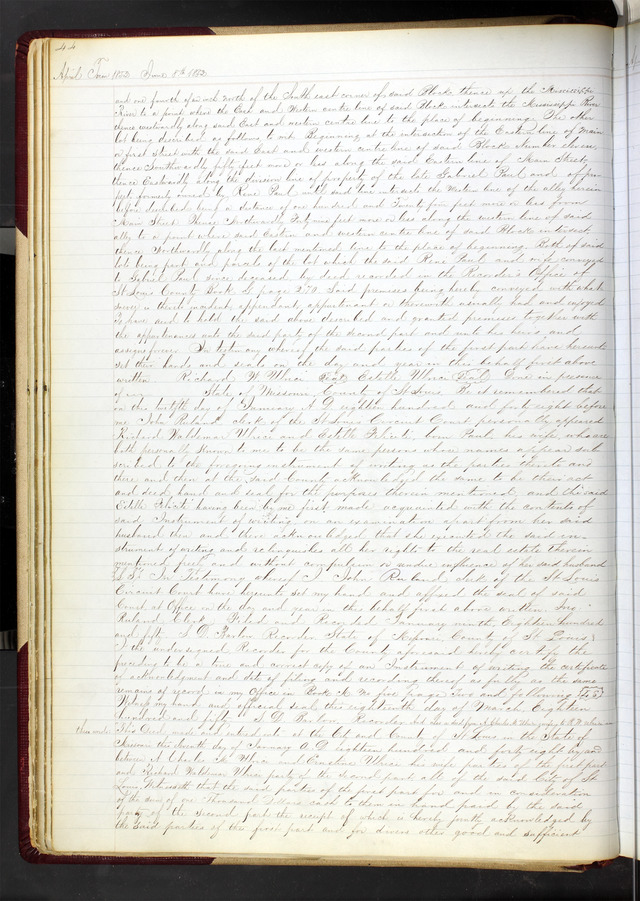 44
April Term 1852. June 8th 1852.
and one fourth of an inch north of the South east corner of said Block, thence up the Mississippi
River to a point where the East and Western centre line of said Block intersects the Mississippi River
thence westwardly along said East and western centre line to the place of beginning. The other
lot being described as follows to wit: Beginning at the intersection of the Eastern line of Main
or first Street with the said East and western centre line of said Block Number eleven,
thence Southwardly fifty feet more or less along the said Eastern line of Main Street,
thence Eastwardly along the division line of property of the late Gabriel Paul and of pro-
perty formerly owned by Rene Paul until said line intersects the Western line of the alley herein
before described being a distance of one hundred and Twenty five feet more or less from
Main Street thence Northwardly Fifty feet more or less along the western line of said
ally to a point where said Eastern and western centre line of said Block intersect,
thence Northwardly along the last mentioned line to the place of beginning. Both of said
lots being part and parcels of the lot which the said Rene Paul and wife conveyed
to Gabriel Paul since deceased by deed recorded in the Recorder's Office of
St Louis County Book page 270. Said premises being hereby conveyed with what
soever is thereto incident appendant, appurtenant or therewith usually had and enjoyed
To have and to hold the said above described and granted premises together with
the appurtenances unto the said party of the second part and unto his heirs and
assigns forever. In testimony whereof the said parties of the first part have hereunto
set their hands and seals on the day and year in this behalf first above
written Richard W Ulrici Seal Estelle Ulrici Seal Done in presence
of State of Missouri County of St Louis Be it remembered that
on this twelfth day of January A D eighteen hundred and forty eight before
me John Ruland clerk of the St Louis Circuit Court personally appeared
Richard Waldemar Ulrici and Estelle born Paul his wife, who are
both personally known to me to be the same persons whose names appear sub
scribed to the foregoing instrument of writing as the parties thereto and
there and then at the said County acknowledged the same to be their act
and deed, hand and seals for the purposes therein mentioned, and the said
Estelle having been by me first made acquainted with the contents of
said Instrument of writing, on an examination apart from her said
husband then and there acknowledged that she executed the said in-
strument of writing and relinquishes all her rights to the real estate therein
mentioned freely and without compulsion or undue influence of her said husband
In Testimony whereof I John Ruland clerk of the St Louis
Circuit Court have hereunto set my hand and affixed the seal of said
Court at Office on the day and year in this behalf first above written. Jno.
Ruland Clerk. Filed and Recorded January ninth Eighteen hundred
and fifty S. D. Barlow Recorder State of Missouri County of St Louis,
I the undersigned Recorder for the County aforesaid hereby certify the
foregoing to be a true and correct copy of an Instrument of writing the certificate
of acknowledgment and date of filing and recording thereto as fully as the same
remains of record in my Office in Book No five page Two and following
Witness my hand and official seal this eighteenth day of March Eighteen
hundred and fifty. S. D. Barlow Recorder
This Deed made and entered into at the City and County of St Louis in the State of
Missouri the seventh day of January A. D. eighteen hundred and forty eight by and
between A Charles Ulrici and Ernestine Ulrici his wife parties of the first part
and Richard Waldemar Ulrici party of the second part all of the said City of St
Louis Witnesseth that the said parties of the first part for and in consideration
of the sum of one Thousand Dollars cash to them in hand paid by the said
party of the second part the receipt of which is hereby fully acknowledged by
the said parties of the first part and for divers other good and sufficient